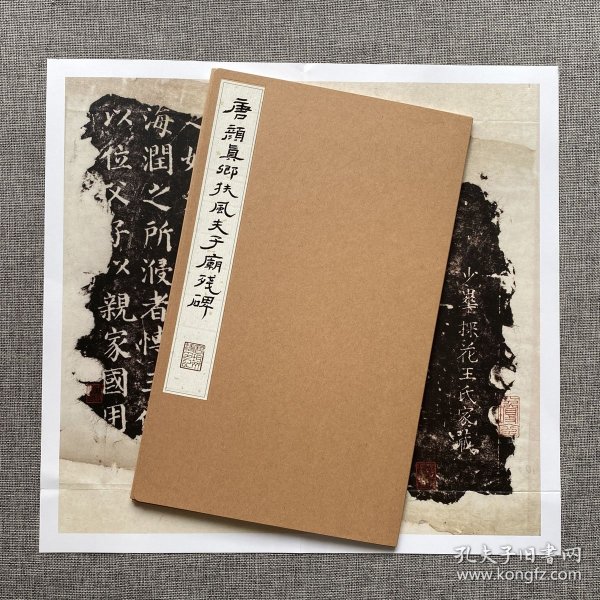 唐顔真卿扶風夫子廟殘碑
海潤之所浸者博
以位父子以親家國用
少農探花王氏家藏
孔夫子旧书网
www.kongfz.com